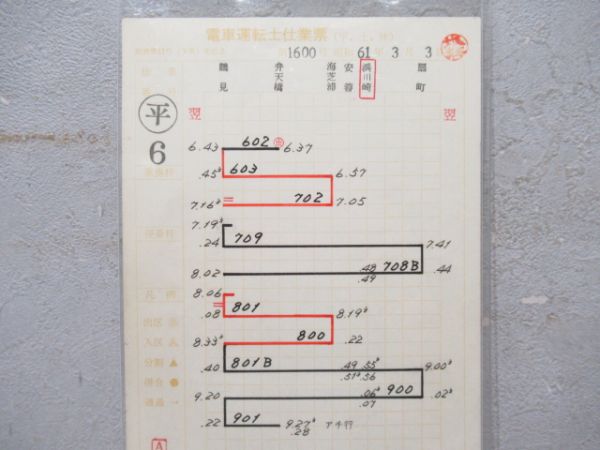 電車運転士仕業票
1600 61年 3月 3
鶴見 弁天橋 海芝浦 安善 浜川崎 扇町
平
6
翌 翌
6.43 602 6.37
.45 603 6.57
7.16 702 7.05
7.19
.24 709 7.41
8.02 .48 708B .44
.49
8.06
.08 801 8.19
8.33 800 .22
.40 801B .49 .55 9.00
.51 .56
9.20 .06 900 .02
.07
.22 901 9.27 アキ行
.28
凡例
出区
入区
分割 ▲
併合 ●
通過 →
A